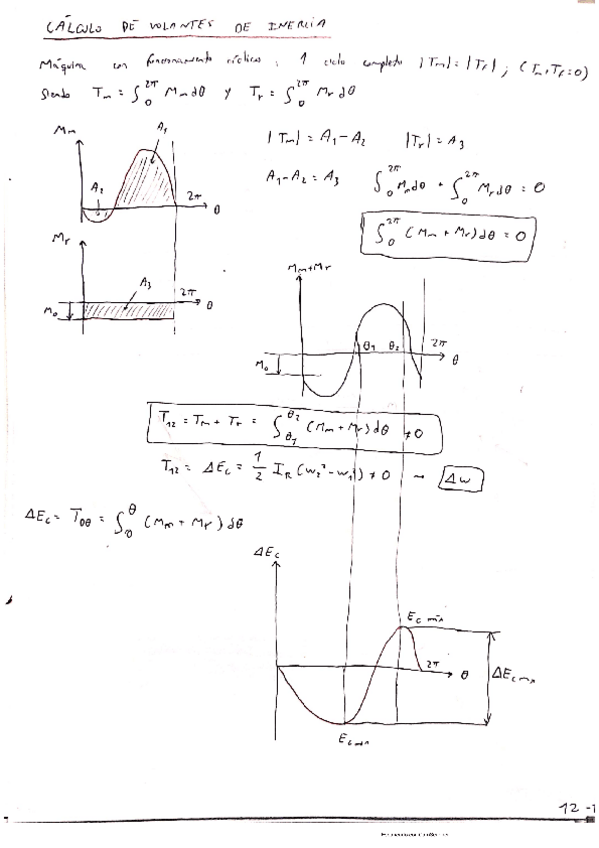 CÁLCULO DE VOLANTES DE INERCIA
Máquina con funcionamiento cíclico: 1 ciclo completo |Tm| = |Tr| ; (Tm+Tr=0)
Siendo Tm = ∫₀^2π Mm dθ y Tr = ∫₀^2π Mr dθ
Mm
A1
A2
2π
θ
|Tm| = A1 - A2 |Tr| = A3
A1 - A2 = A3 ∫₀^2π Mm dθ + ∫₀^2π Mr dθ = 0
∫₀^2π (Mm + Mr) dθ = 0
Mr
A3
2π
θ
Mo
Mm+Mr
θ1 θ2 2π
θ
Mo
T12 = Tm + Tr = ∫θ1^θ2 (Mm + Mr) dθ ≠ 0
T12 = ΔEc = 1/2 IR (w2² - w1²) ≠ 0 → Δw
ΔEc = T0θ = ∫₀^θ (Mm + Mr) dθ
ΔEc
Ec máx
2π
θ
ΔEc máx
Ec mín
12-1